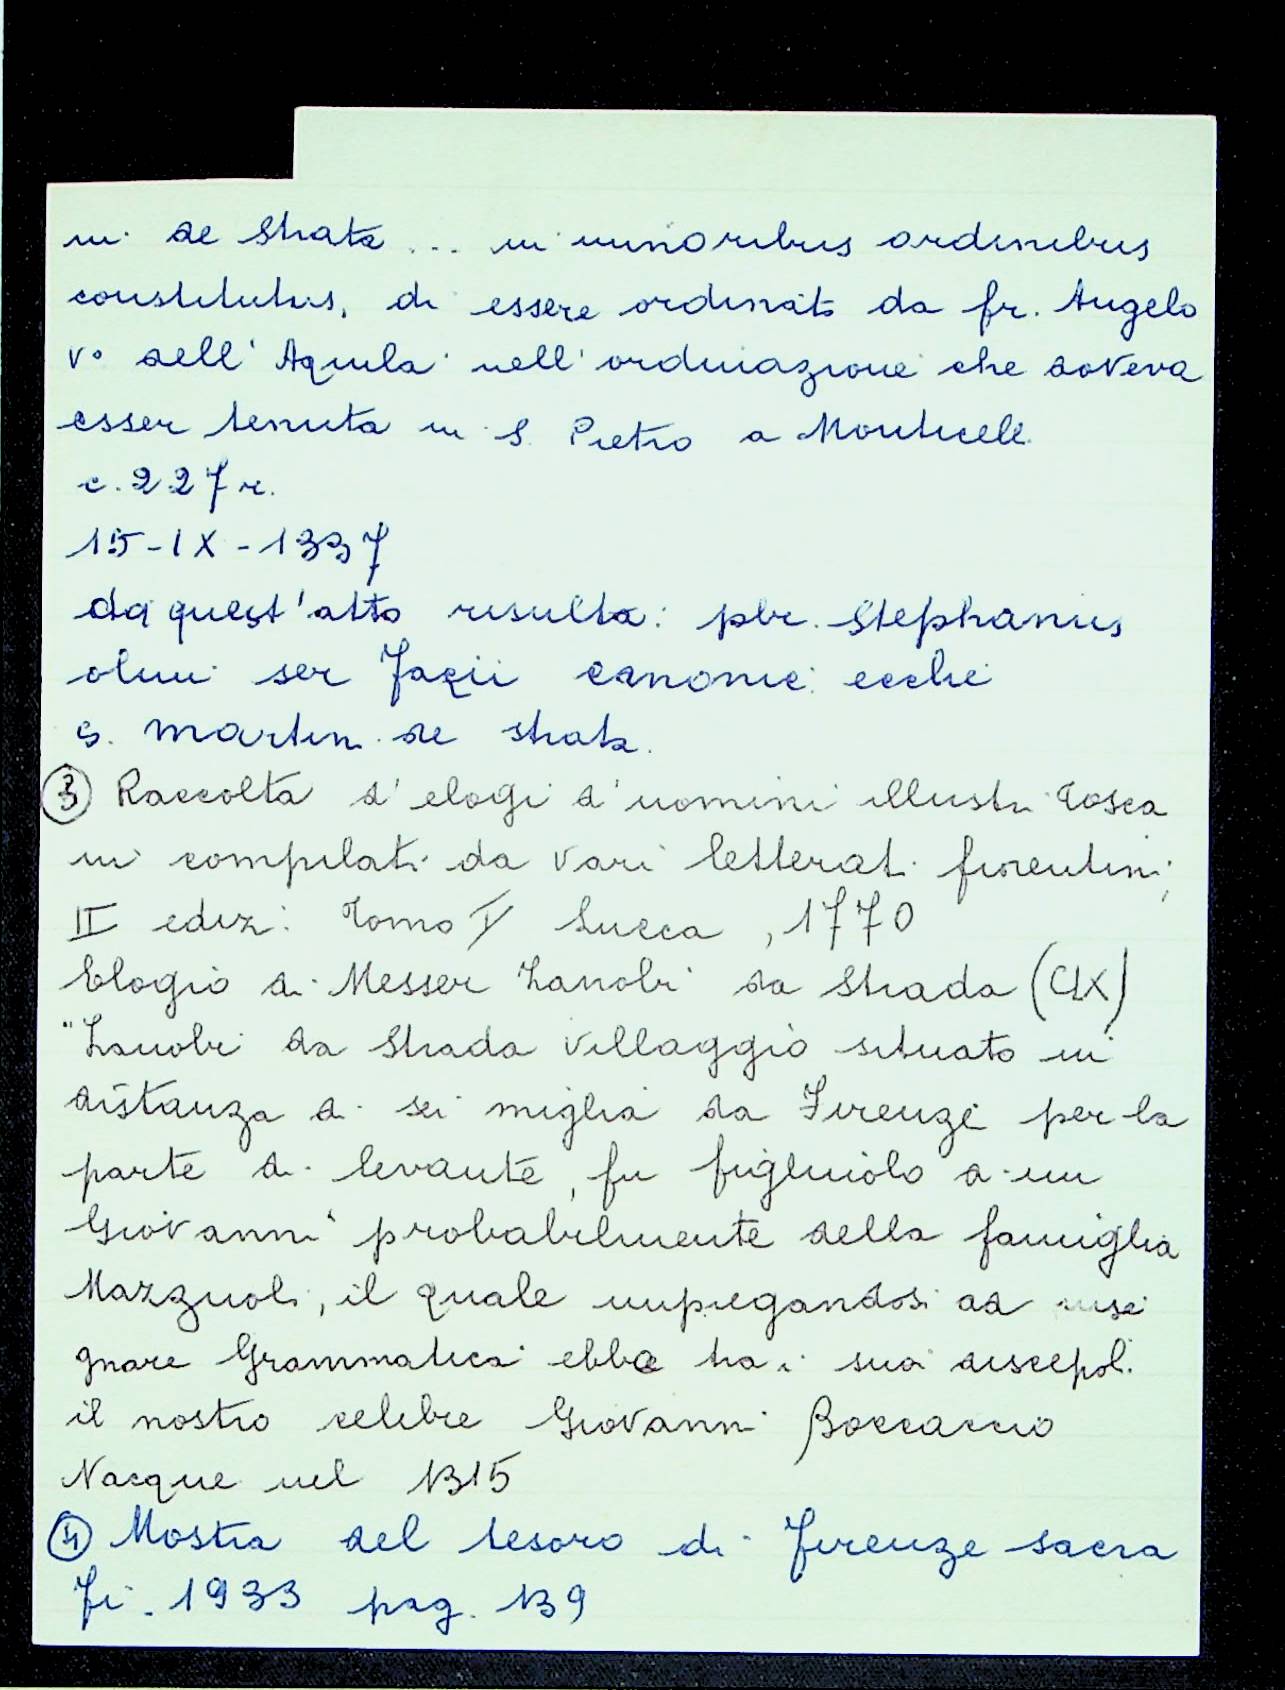 ni de Strata ... in minoribus ordinibus
constitutus, di essere ordinato da fr. Angelo
v° dell'Aquila nell'ordinazione che doveva
esser tenuta in S. Pietro a Monticelli
c. 227 r.
15-IX-1337
da quest'atto risulta: pbr. Stephanus
olim ser Jacii canonici ecclie
S. Martini de Strata.
③ Raccolta d'elogi d'uomini illustri Tosca
ni compilati da vari letterati fiorentini,
II ediz: Tomo V Lucca, 1770
Elogio di Messer Zanobi da Strada (CLX)
"Zanobi da Strada villaggio situato in
distanza di sei miglia da Firenze per la
parte di levante, fu figliuolo d'un
Giovanni probabilmente della famiglia
Mazzuoli, il quale impiegandosi ad inse
gnare Grammatica ebbe tra i suoi discepoli
il nostro celebre Giovanni Boccaccio
Nacque nel 1315
④ Mostra del tesoro di Firenze sacra
Fi. 1933 pag. 139